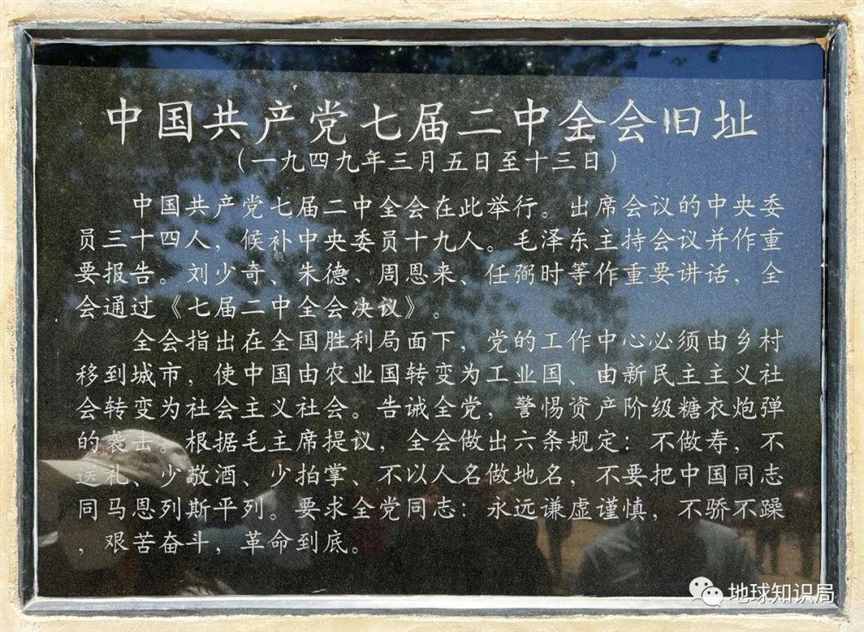 中国共产党七届二中全会旧址
（一九四九年三月五日至十三日）
中国共产党七届二中全会在此举行。出席会议的中央委
员三十四人，候补中央委员十九人。毛泽东主持会议并作重
要报告。刘少奇、朱德、周恩来、任弼时等作重要讲话，全
会通过《七届二中全会决议》。
全会指出在全国胜利局面下，党的工作中心必须由乡村
移到城市，使中国由农业国转变为工业国、由新民主主义社
会转变为社会主义社会。告诫全党，警惕资产阶级糖衣炮弹
的袭击。根据毛主席提议，全会做出六条规定：不做寿，不
送礼、少敬酒、少拍掌、不以人名做地名，不要把中国同志
同马恩列斯平列。要求全党同志：永远谦虚谨慎，不骄不躁
，艰苦奋斗，革命到底。
地球知识局